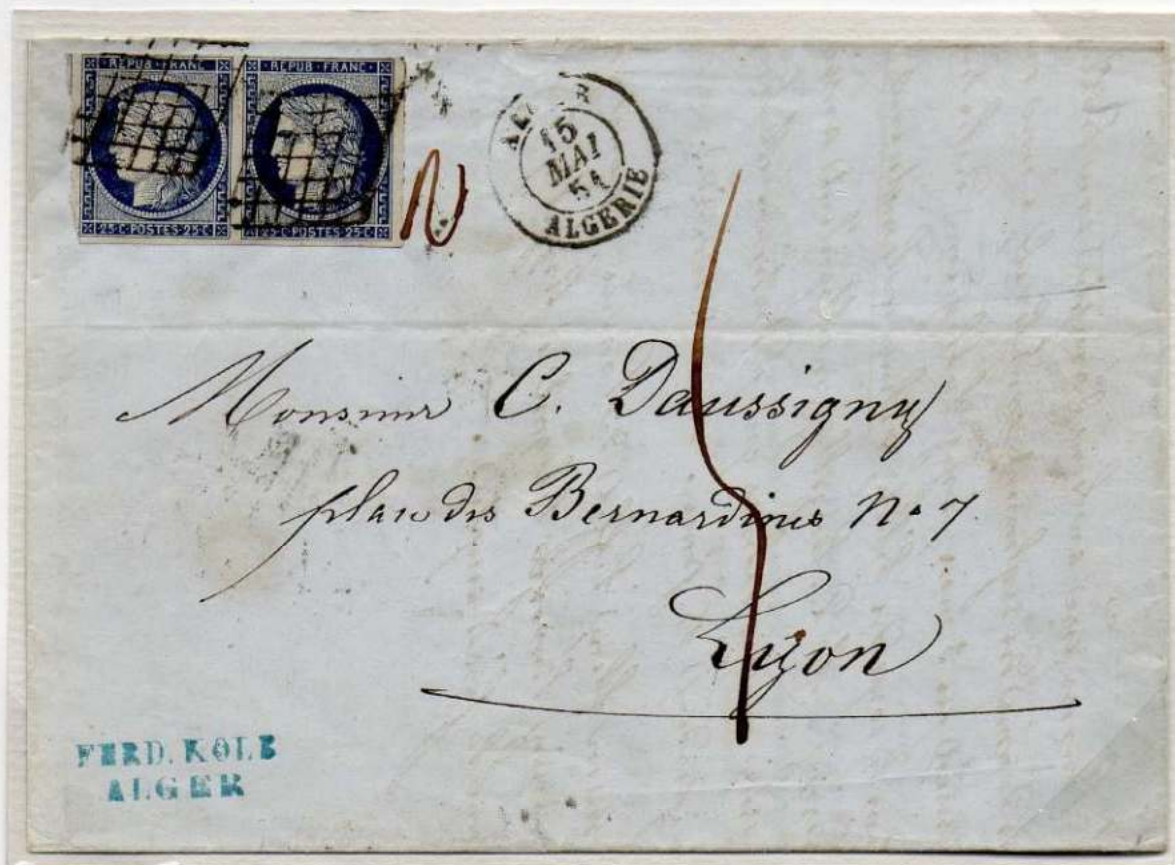 REPUB·FRANC REPUB·FRANC
25·C·POSTES·25·C 25·C·POSTES·25·C
ALGER
15
MAI
51
ALGERIE
Monsieur C. Daussigny
place des Bernardines No 7
Lyon
FERD. KOLB
ALGER